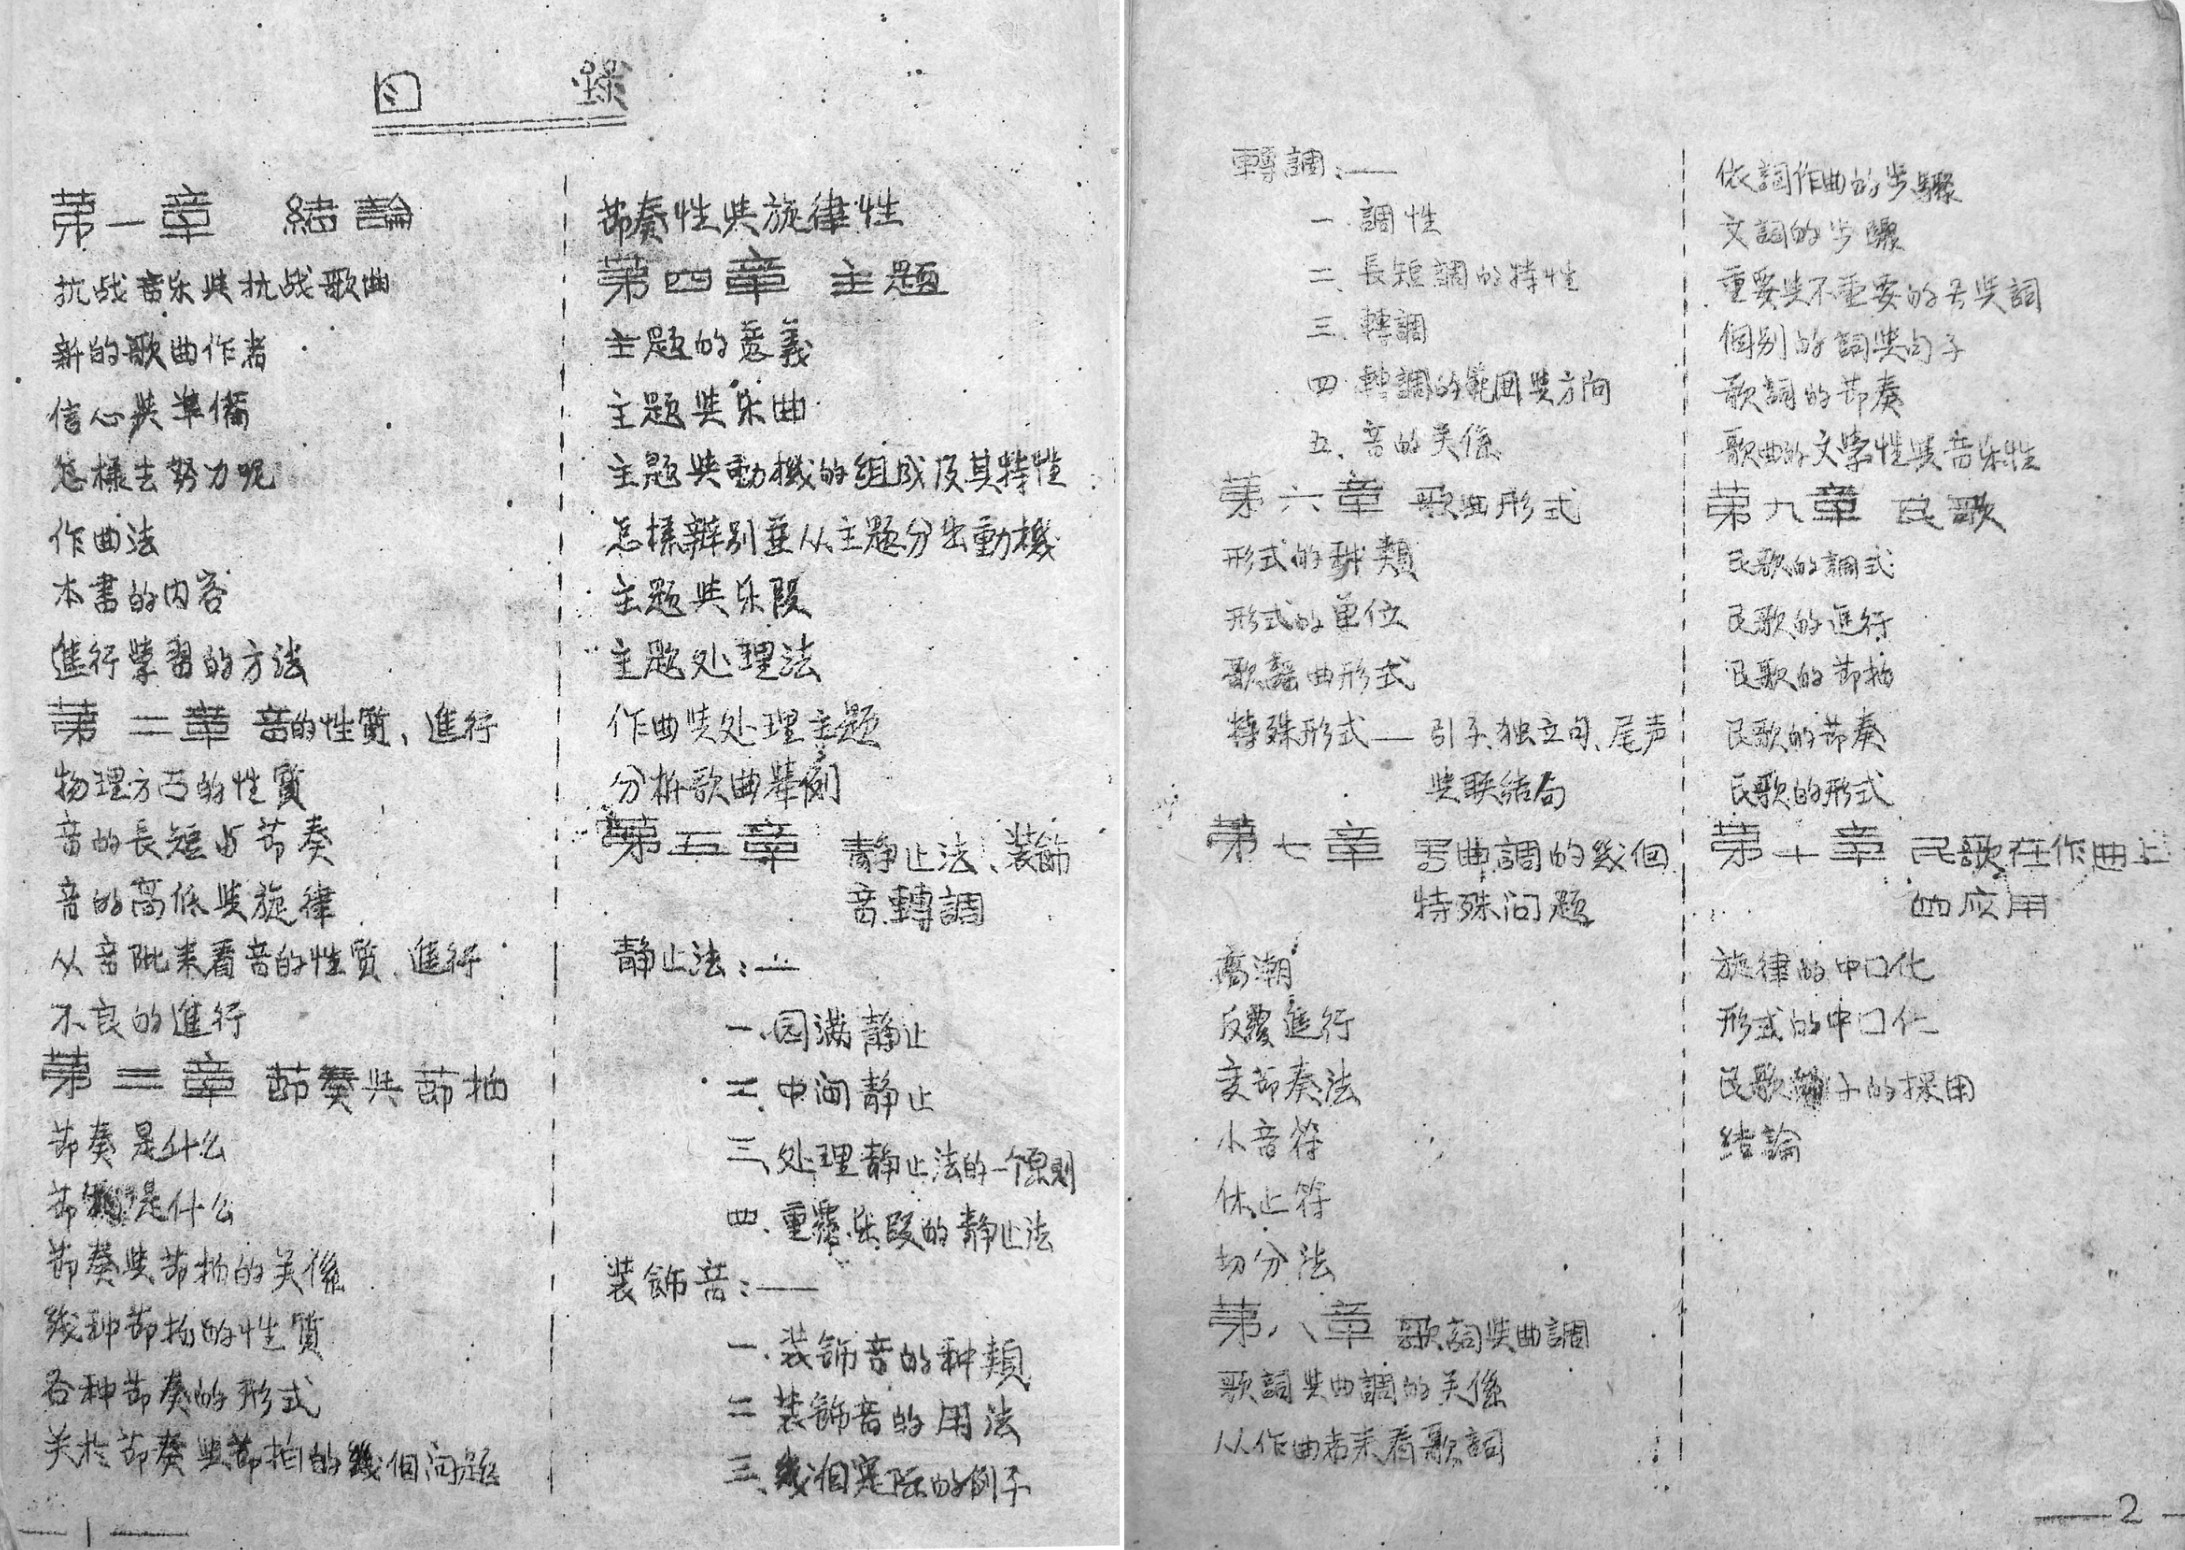 目 錄
第一章 結論
抗战音乐與抗战歌曲
新的歌曲作者
信心與準備
怎樣去努力呢
作曲法
本書的内容
進行學習的方法
第二章 音的性質、進行
物理方面的性質
音的長短与節奏
音的高低與旋律
从音阶来看音的性質、進行
不良的進行
第三章 節奏共節拍
節奏是什么
節拍是什么
節奏與節拍的关係
幾种節拍的性質
各种節奏的形式
关於節奏與節拍的幾個问题
—1—
節奏性與旋律性
第四章 主题
主题的意義
主题與乐曲
主题與動機的组成及其特性
怎樣辦别並从主题分出動機
主题與乐段
主题处理法
作曲與处理主题
分析歌曲舉例
第五章 静止法、装飾
音、轉調
静止法:—
一.园满静止
二.中间静止
三、处理静止法的一个原则
四.重覆乐段的静止法
装飾音:—
一.装飾音的种類
二 装飾音的用法
三、幾個实际的例子
轉調:—
一.調性
二.長短調的特性
三.轉調
四.轉調的範囲與方向
五.音的关係
第六章 歌曲形式
形式的种類
形式的单位
歌謡曲形式
特殊形式— 引子、独立句、尾声
與联结句
第七章 写曲調的幾個
特殊问题
高潮
反覆進行
变節奏法
小音符
休止符
切分法
第八章 歌詞與曲調
歌詞與曲調的关係
从作曲者来看歌詞
依詞作曲的步驟
文詞的步驟
重要與不重要的字與詞
個别的詞與句子
歌詞的節奏
歌曲的文学性與音乐性
第九章 民歌
民歌的調式
民歌的進行
民歌的節拍
民歌的節奏
民歌的形式
第十章 民歌在作曲上
的应用
旋律的中囗化
形式的中囗化
民歌子的採用
结論
—2—